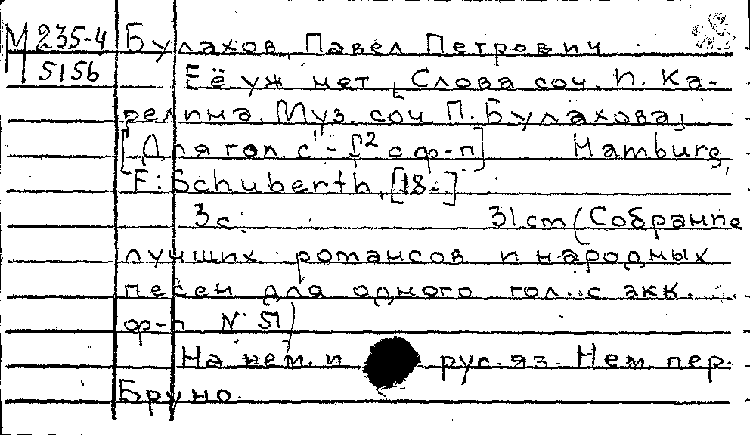 М 235-4 Булахов, Павел Петрович
5156 Её уж нет [Слова соч. П. Ка-
релина. Муз. соч П. Булахова]
[Для гол. с'-f² с ф-п] Hamburg,
F. Schuberth, [18-]
3 с. 31 cm (Собрание
лучших романсов и народных
песен для одного гол. с акк.
ф-п N 51)
На нем. и рус. яз. Нем. пер.
Бруно